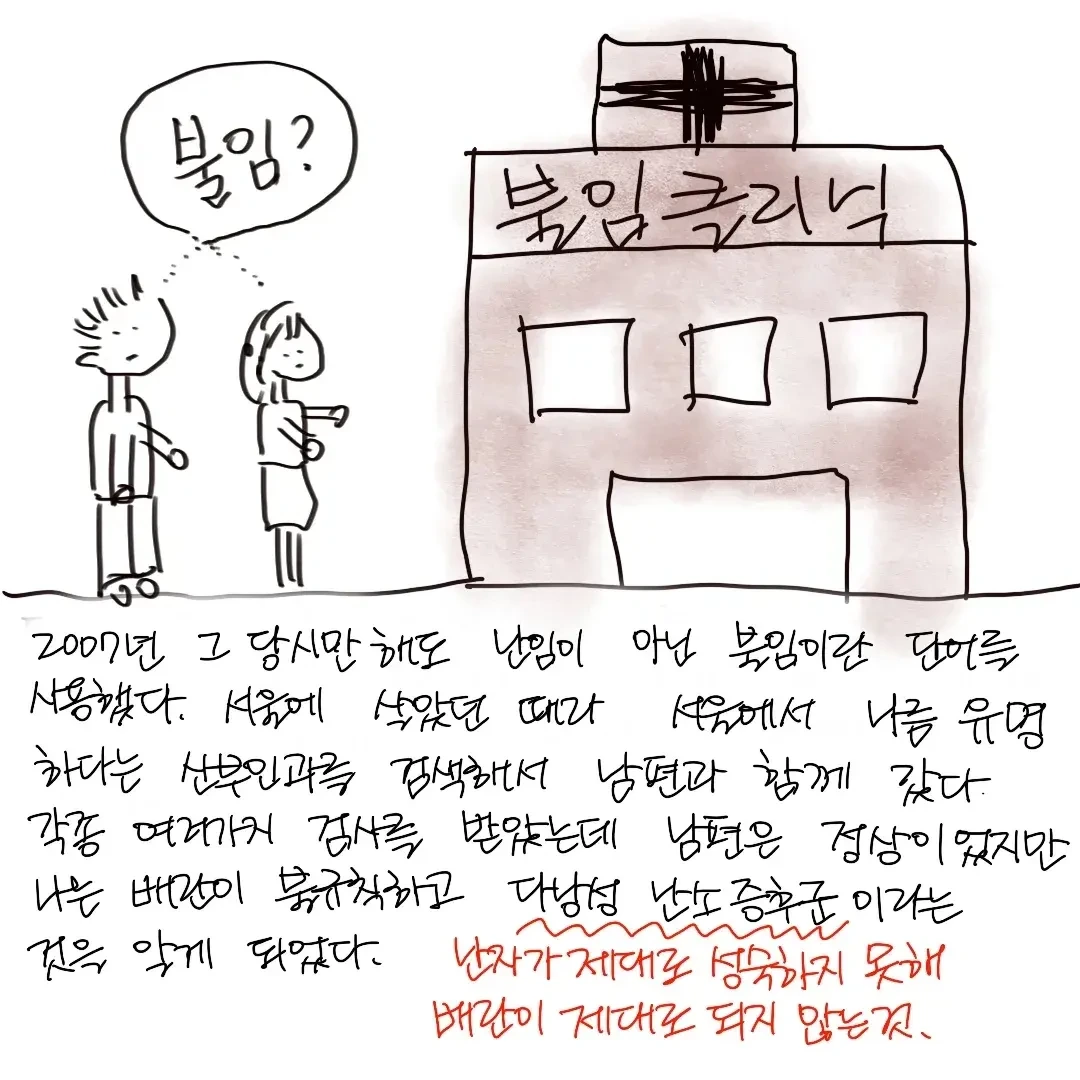 불임?
불임클리닉
2007년 그 당시만해도 난임이 아닌 불임이란 단어를
사용했다. 서울에 살았던 때라 서울에서 나름 유명
하다는 산부인과를 검색해서 남편과 함께 갔다.
각종 여러가지 검사를 받았는데 남편은 정상이었지만
나는 배란이 불규칙하고 다낭성 난소증후군이라는
것을 알게 되었다. 난자가 제대로 성숙하지 못해
배란이 제대로 되지 않는것.